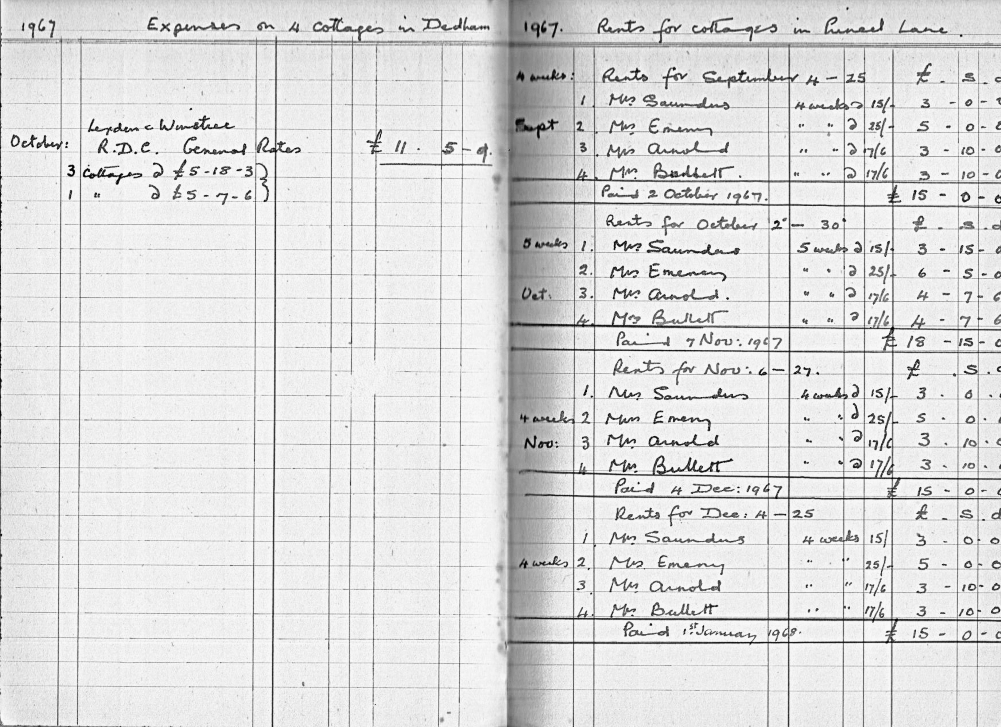 1967 Expenses on 4 cottages in Dedham
Lexden & Winstree
October: R.D.C. General Rates £ 11 . 5 - 9
3 Cottages @ £5-18-3 }
1 " @ £5-7-6 }
1967. Rents for cottages in Lane.
4 weeks: Rents for September 4 - 25 £ . S . d
1. Mrs Saunders 4 weeks @ 15/- 3 - 0 - 0
Sept 2. Mrs Emeny " " @ 25/- 5 - 0 - 0
3. Mrs Arnold " " @ 17/6 3 - 10 - 0
4. Mrs Bullett. " " @ 17/6 3 - 10 - 0
Paid 2 October 1967. £ 15 - 0 - 0
Rents for October 2 - 30 £ . S . d
5 weeks 1. Mrs Saunders 5 weeks @ 15/- 3 - 15 - 0
2. Mrs Emeny " " @ 25/- 6 - 5 - 0
Oct. 3. Mrs Arnold. " " @ 17/6 4 - 7 - 6
4. Mrs Bullett " " @ 17/6 4 - 7 - 6
Paid 7 Nov: 1967 £ 18 - 15 - 0
Rents for Nov: 6 - 27. £ . S . d
1. Mrs Saunders 4 weeks @ 15/- 3 . 0 .
4 weeks 2 Mrs Emeny " " @ 25/- 5 - 0 .
Nov: 3 Mrs Arnold " " @ 17/6 3 . 10 -
4 Mrs Bullett " " @ 17/6 3 - 10 .
Paid 4 Dec: 1967 £ 15 - 0 - 0
Rents for Dec: 4 - 25 £ . S . d
1. Mrs Saunders 4 weeks 15/ 3 - 0 - 0
4 weeks 2. Mrs Emeny " " 25/- 5 - 0 - 0
3. Mrs Arnold " " 17/6 3 - 10 - 0
4. Mrs Bullett " " 17/6 3 - 10 - 0
Paid 1st January 1968. £ 15 - 0 - 0